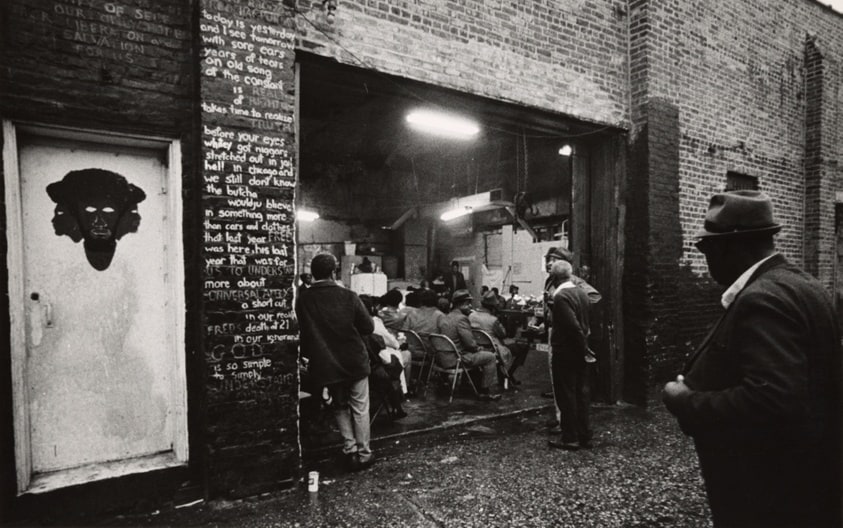 OF SELF
LIBERATION
SALVATION
today is yesterday
and I see tomorrow
with sore ears
years of tears
an old song
of the constant
is REAL
of
takes time to realize
TRUTH
before your eyes
whitey got niggars
stretched out in jail
hell in chicago and
we still don't know
the butcha
wouldju blieve
in something more
than cars and clothes
that last year FRED
was here, his last
year that was for
US TO UNDERSTAND
more about
UNIVERSAL
a short cut
in our
FREDS death at 21
in our ignorance
GOD
is so simple
to simply
UNDERSTAND